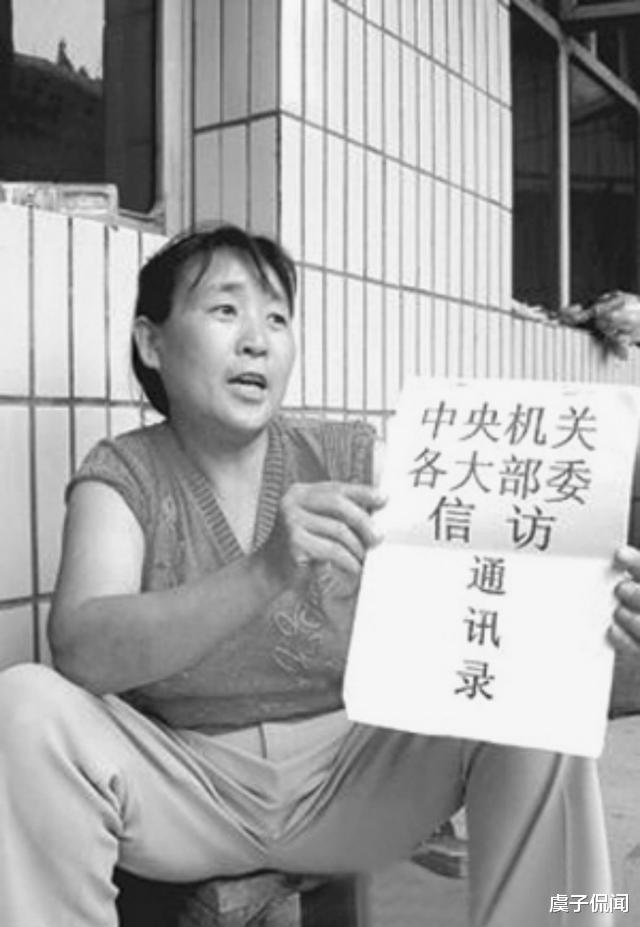 中央机关
各大部委
信访
通
讯
录
虞子侃闻